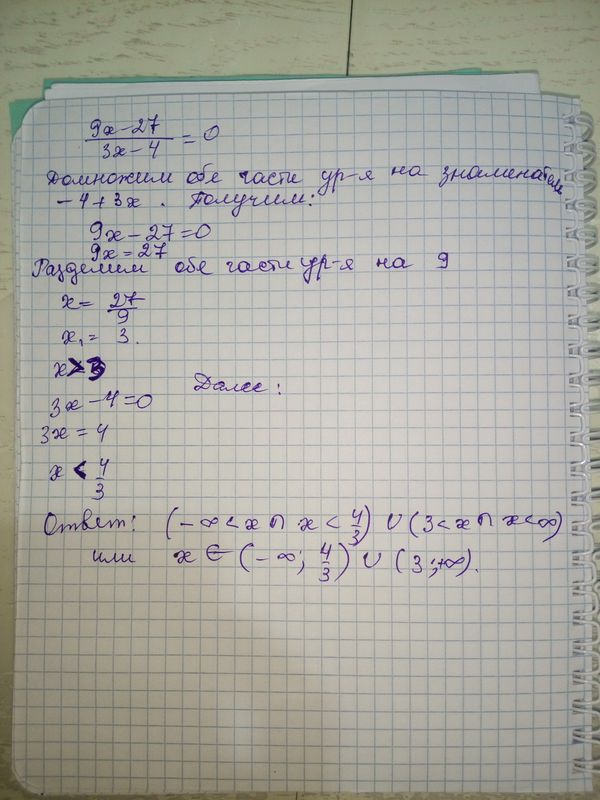 9x-27
3x-4 = 0
Домножим обе части ур-я на знаменатель
-4+3x. Получим:
9x-27=0
9x=27
Разделим обе части ур-я на 9
x = 27/9
x₁ = 3.
x>3
Далее:
3x-4=0
3x = 4
x < 4/3
Ответ: (-∞<x∩ x< 4/3) ∪ (3<x∩ x<∞)
или x ∈ (-∞; 4/3) ∪ (3;+∞).